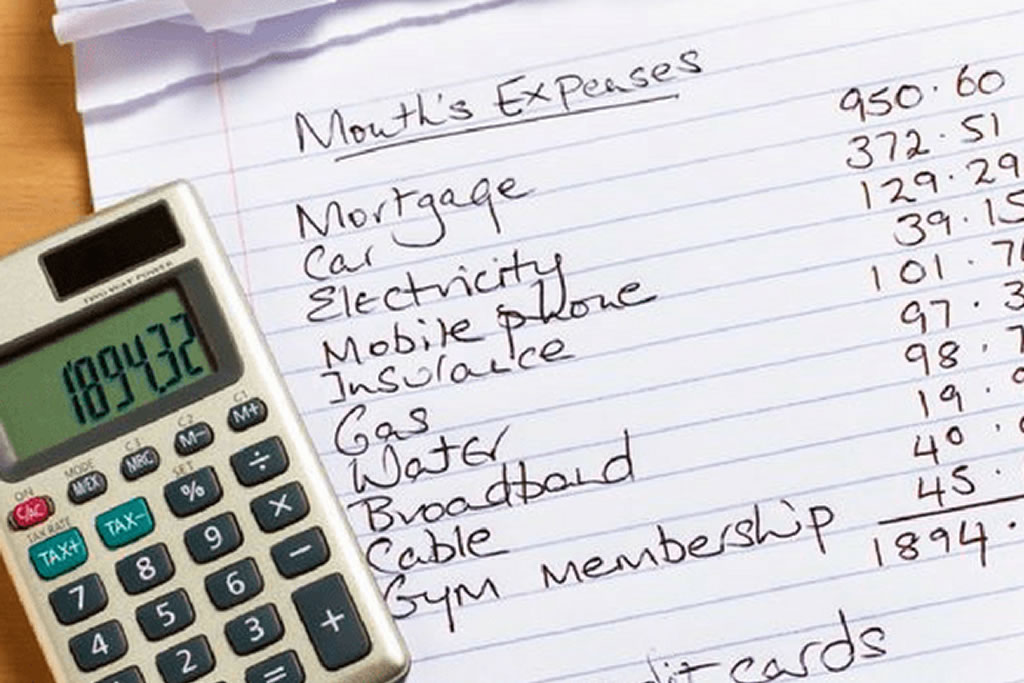 Month's Expenses
Mortgage 950.60
Car 372.51
Electricity 129.29
Mobile phone 39.15
Insurance 101.7
Gas 97.3
Water 98.7
Broadband 19.
Cable 40.
Gym membership 45.
1894.
cards
TWO WAY POWER
1894.32
ON C/AC MODE M/EX C3 MRC C2 M− C1 M+
TAX RATE TAX+ TAX− SET % ÷
7 8 9 ×
4 5 6 −
2 3 +
=